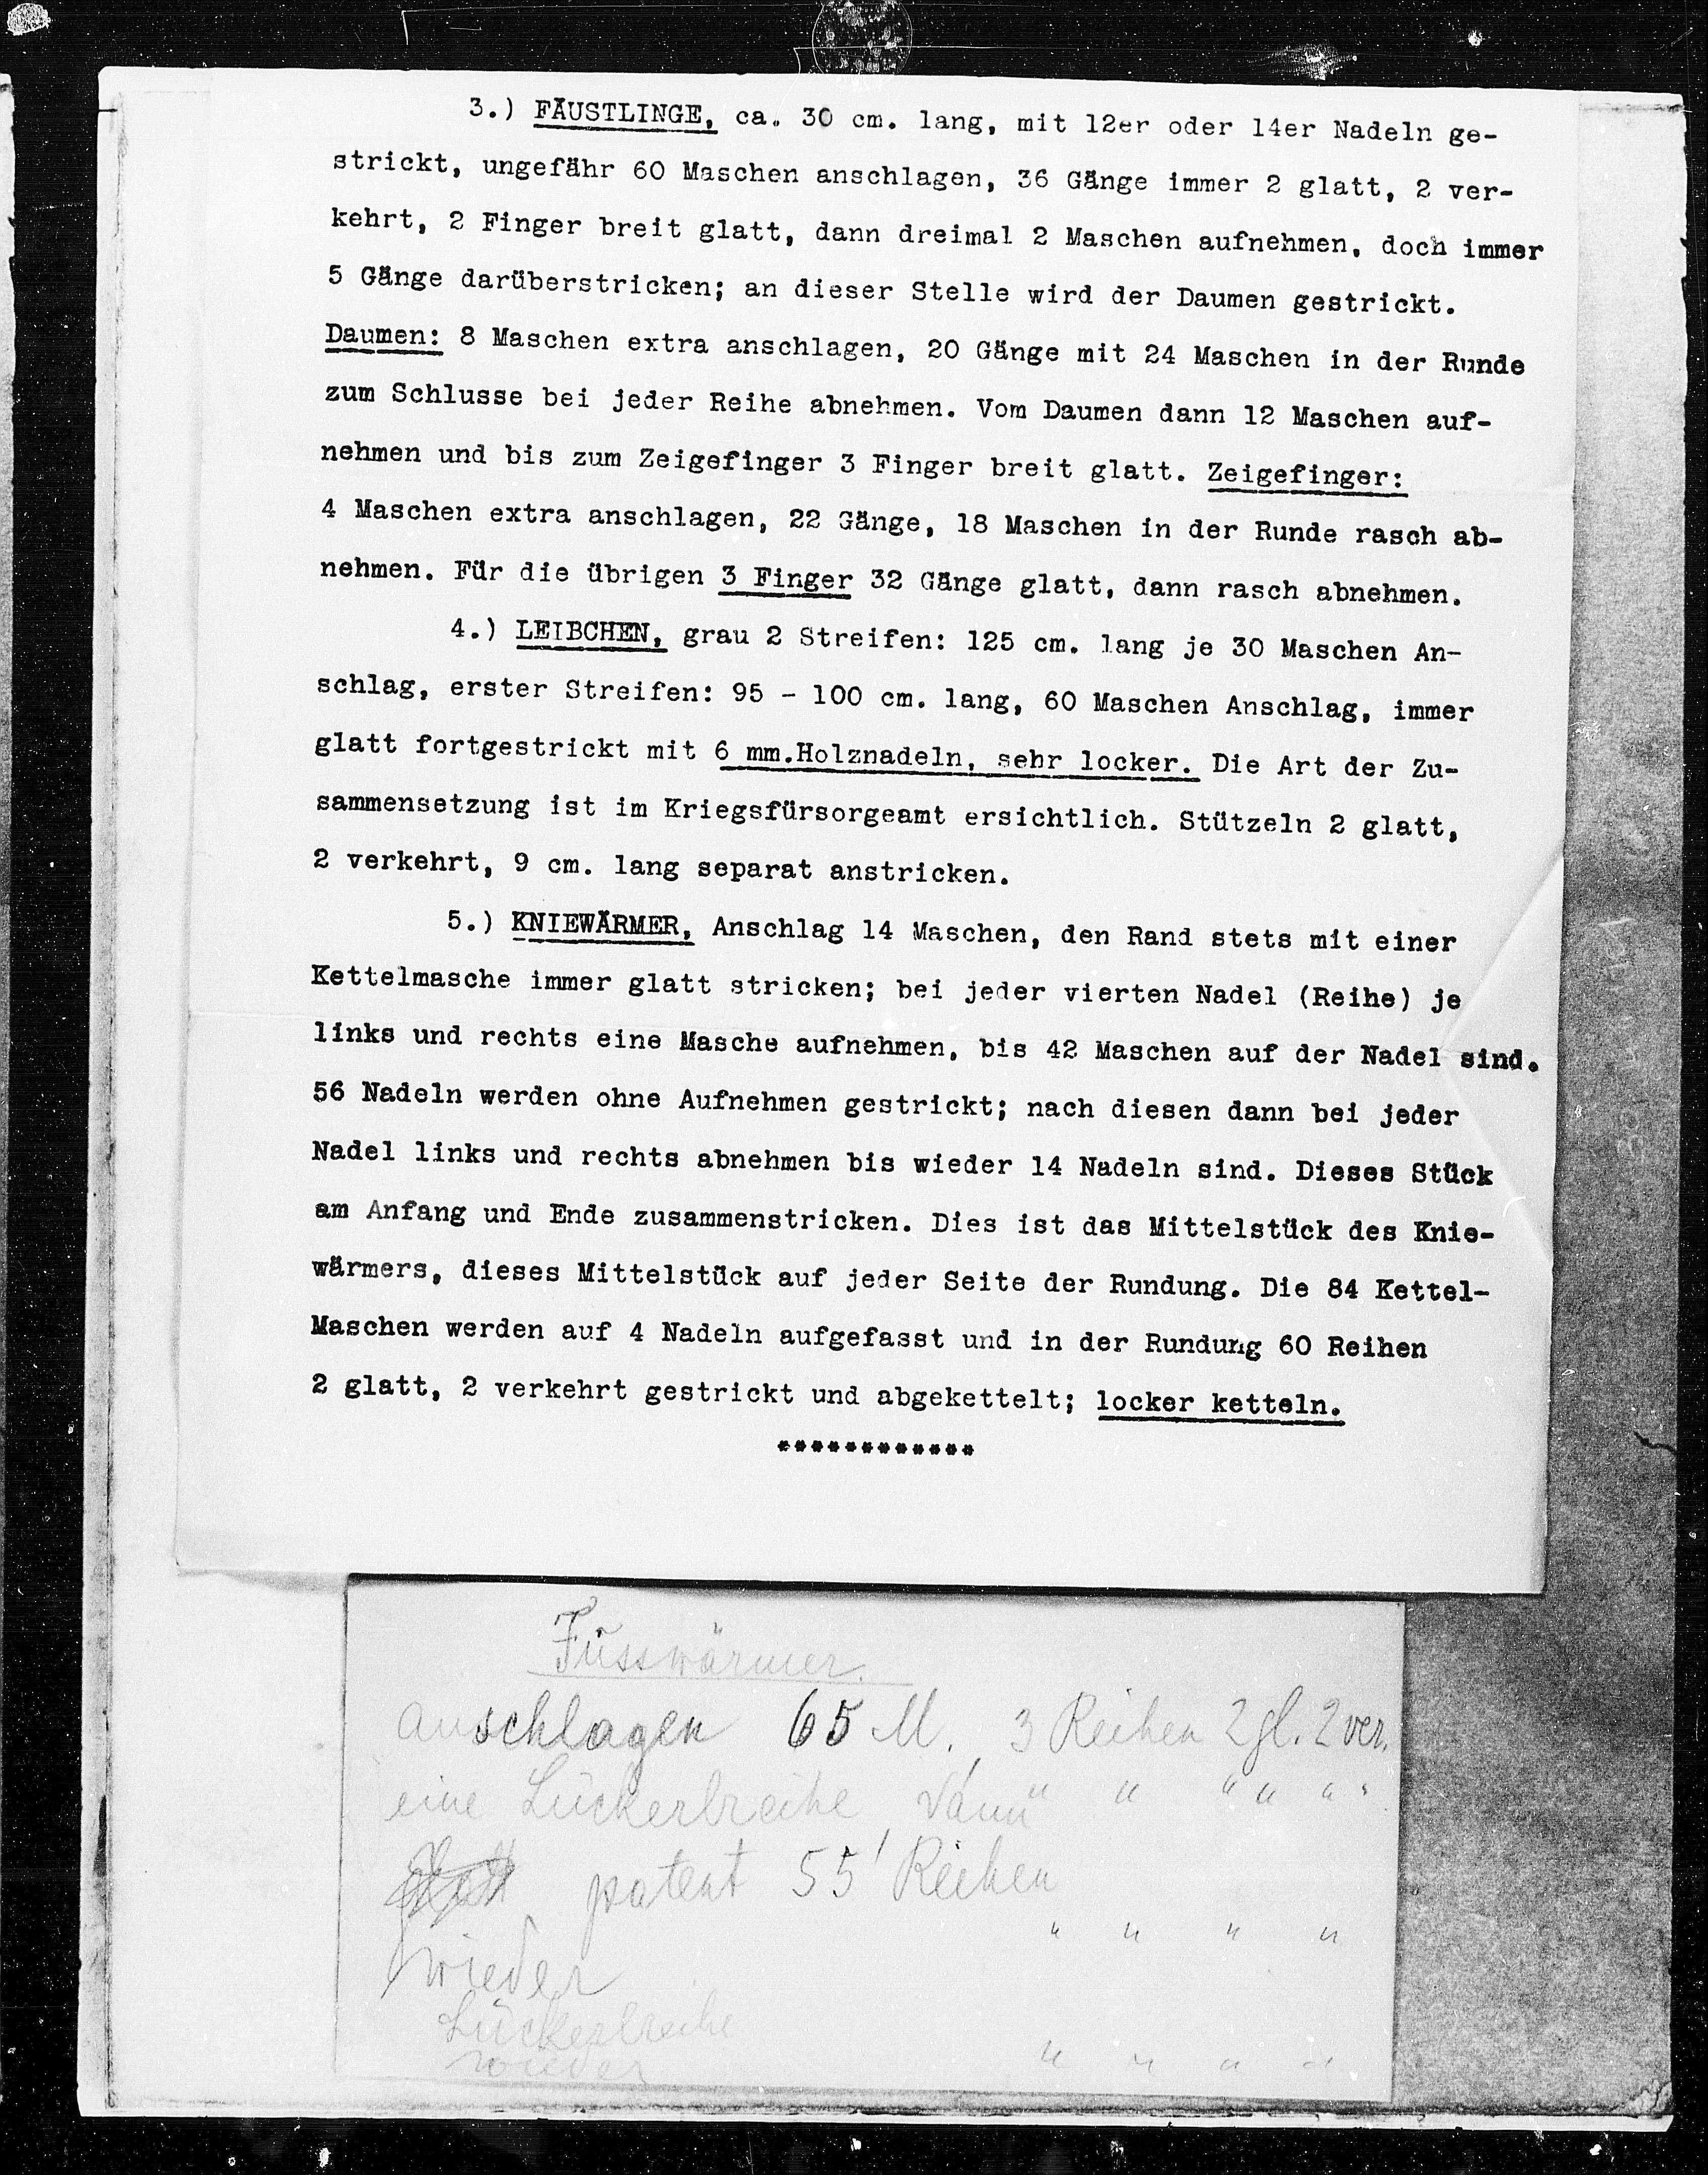 3.) FÄUSTLINGE, ca. 30 cm. lang, mit 12er oder 14er Nadeln ge-
strickt, ungefähr 60 Maschen anschlagen, 36 Gänge immer 2 glatt, 2 ver-
kehrt, 2 Finger breit glatt, dann dreimal 2 Maschen aufnehmen, doch immer
5 Gänge darüberstricken; an dieser Stelle wird der Daumen gestrickt.
Daumen: 8 Maschen extra anschlagen, 20 Gänge mit 24 Maschen in der Runde
zum Schlusse bei jeder Reihe abnehmen. Vom Daumen dann 12 Maschen auf-
nehmen und bis zum Zeigefinger 3 Finger breit glatt. Zeigefinger:
4 Maschen extra anschlagen, 22 Gänge, 18 Maschen in der Runde rasch ab-
nehmen. Für die übrigen 3 Finger 32 Gänge glatt, dann rasch abnehmen.
4.) LEIBCHEN, grau 2 Streifen: 125 cm. lang je 30 Maschen An-
schlag, erster Streifen: 95 - 100 cm. lang, 60 Maschen Anschlag, immer
glatt fortgestrickt mit 6 mm.Holznadeln, sehr locker. Die Art der Zu-
sammensetzung ist im Kriegsfürsorgeamt ersichtlich. Stützeln 2 glatt,
2 verkehrt, 9 cm. lang separat anstricken.
5.) KNIEWÄRMER, Anschlag 14 Maschen, den Rand stets mit einer
Kettelmasche immer glatt stricken; bei jeder vierten Nadel (Reihe) je
links und rechts eine Masche aufnehmen, bis 42 Maschen auf der Nadel sind.
56 Nadeln werden ohne Aufnehmen gestrickt; nach diesen dann bei jeder
Nadel links und rechts abnehmen bis wieder 14 Nadeln sind. Dieses Stück
am Anfang und Ende zusammenstricken. Dies ist das Mittelstück des Knie-
wärmers, dieses Mittelstück auf jeder Seite der Rundung. Die 84 Kettel-
Maschen werden auf 4 Nadeln aufgefasst und in der Rundung 60 Reihen
2 glatt, 2 verkehrt gestrickt und abgekettelt; locker ketteln.
************
Fusswärmer.
anschlagen 65 M., 3 Reihen 2 gl. 2 ver.
eine Lückerlreihe, dann " " " " " "
patent 55 Reihen
wieder " " " "
Lückerlreihe
wieder " " " "